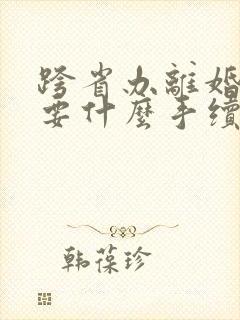 跨省办離婚
要什麼手續
韩葆珍